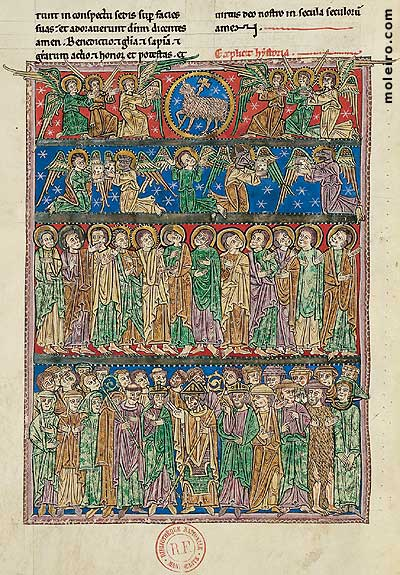 runt in conspectu sedis sup facies
suas: et adorauerunt dnm dicentes
amen. Benedictio ⁊ glia ⁊ sapia. ⁊
grarum actio ⁊ honor et potestas. et
uirtus deo nostro in secula seculorū
amen
Explicit hystoria.
moleiro.com
BIBLIOTHEQUE NATIONALE
R.F.